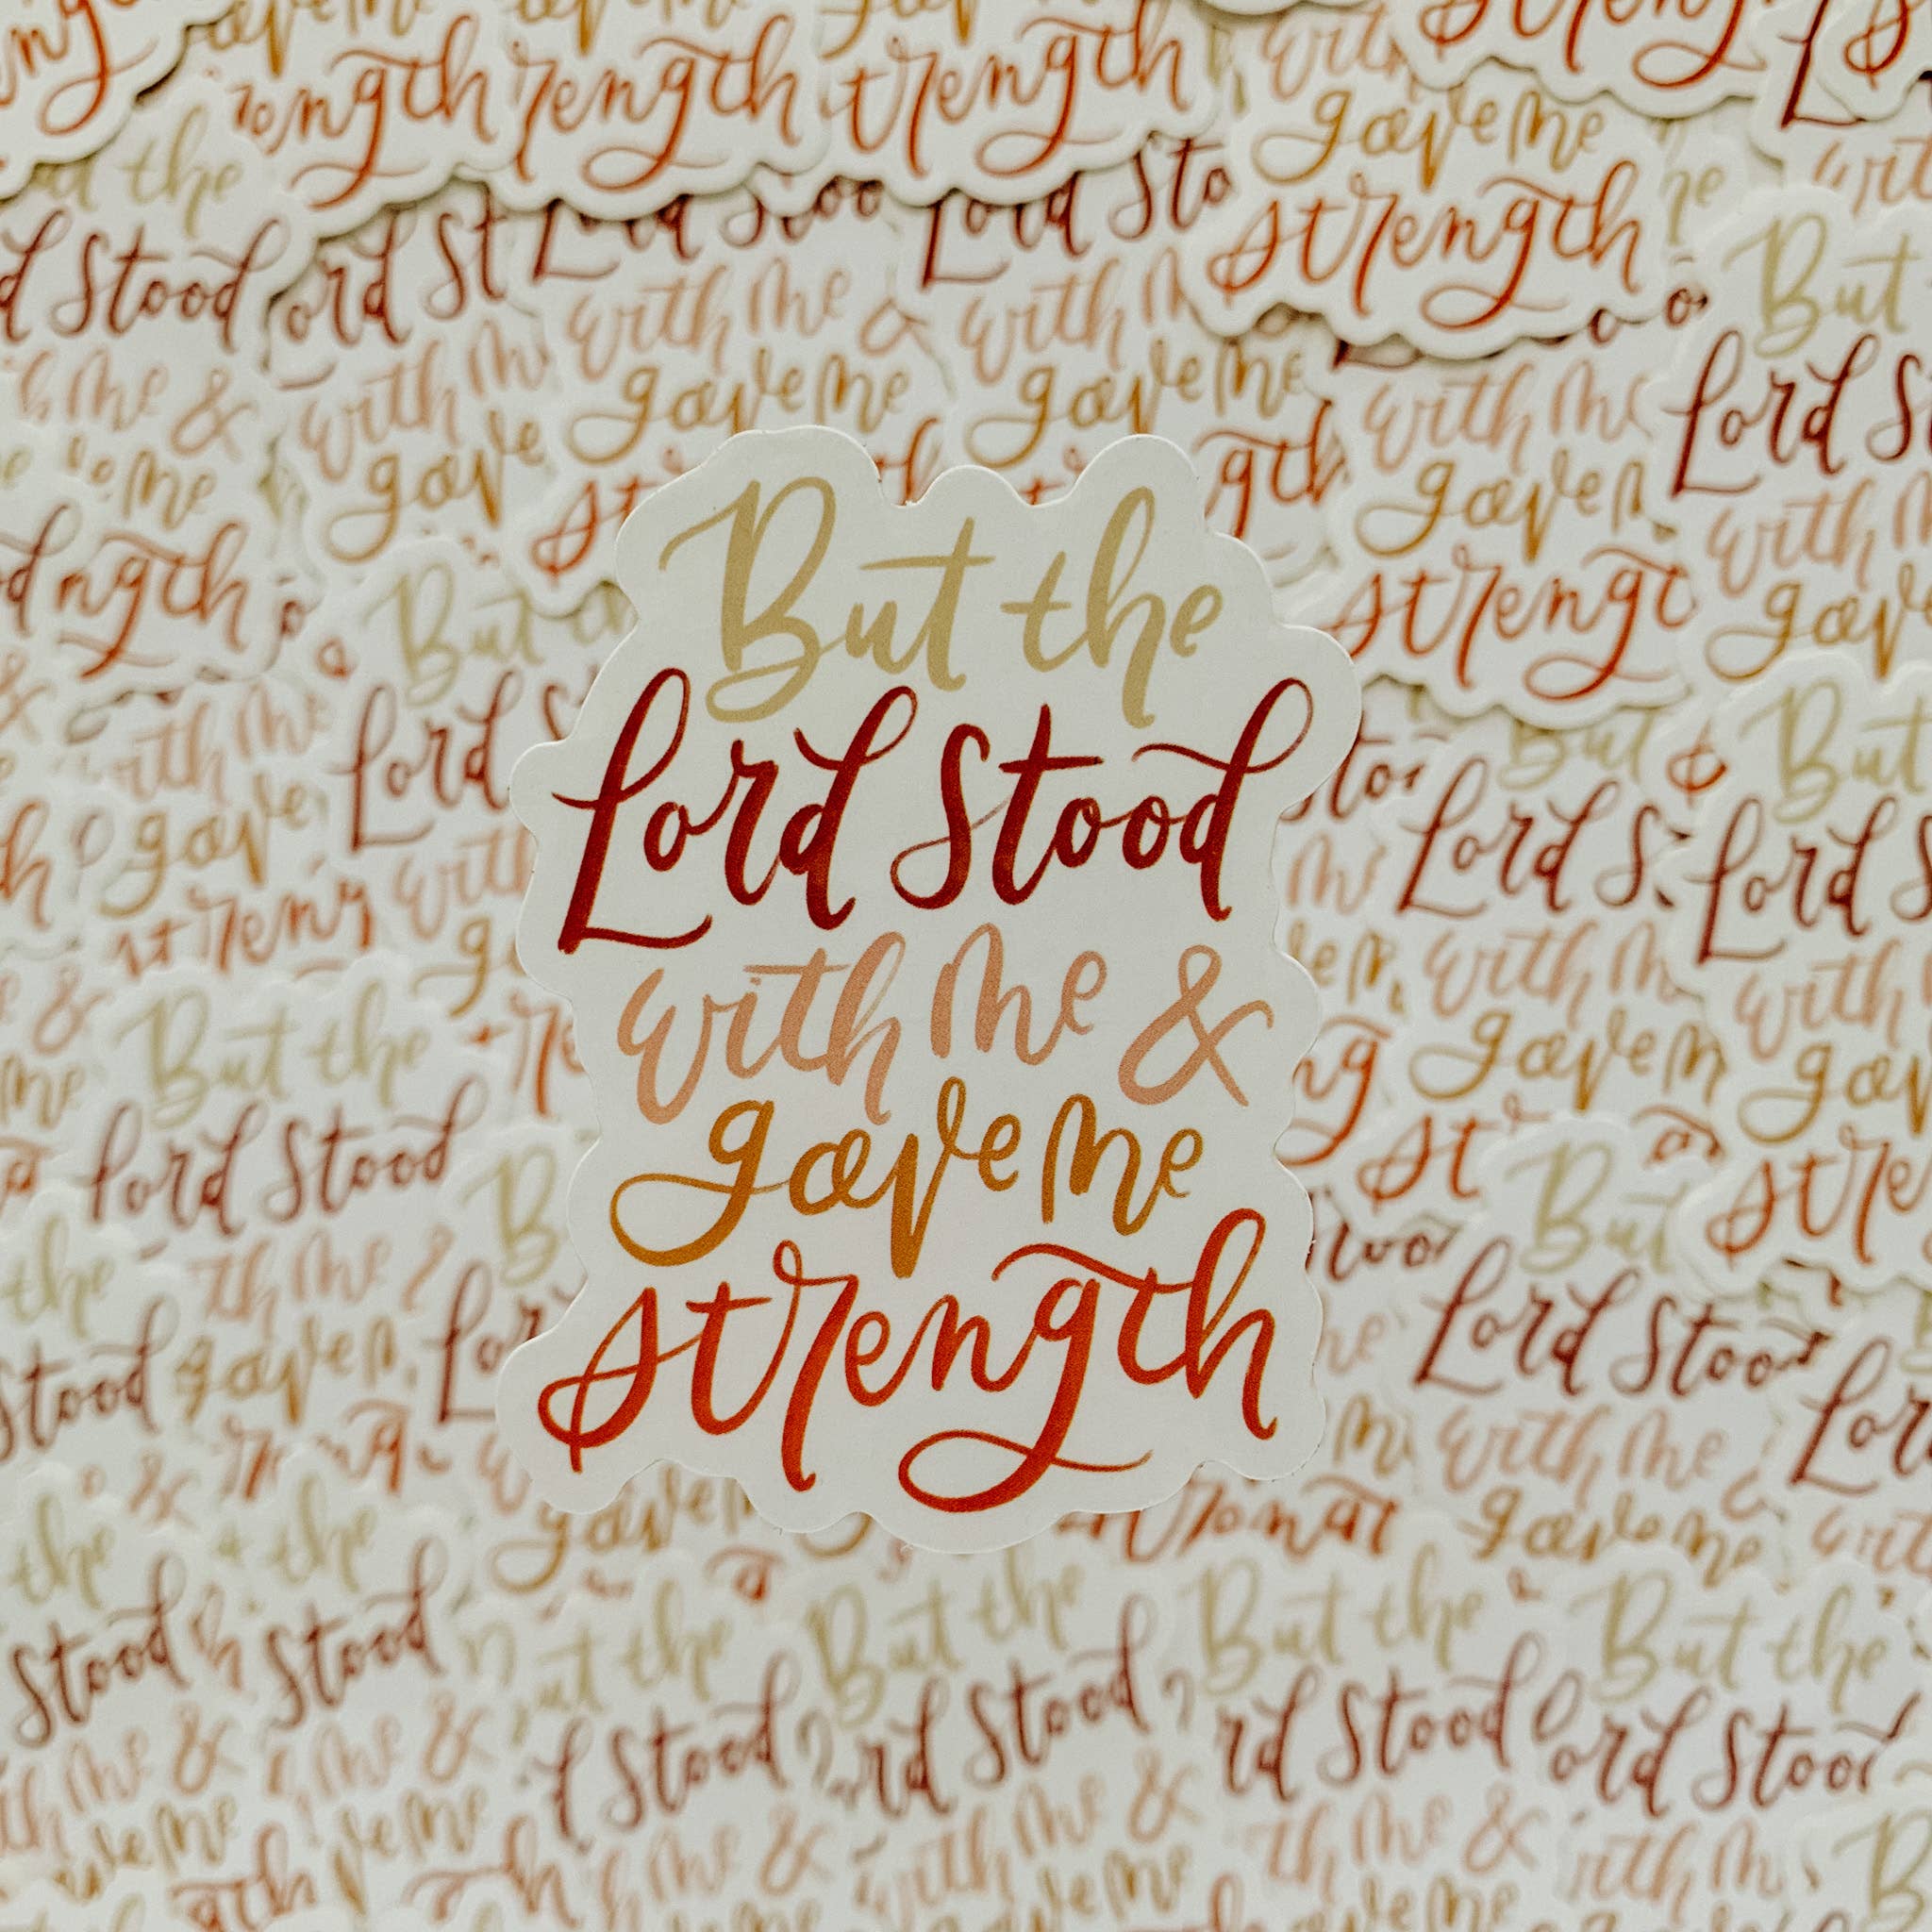 But the
Lord Stood
with me &
gave me
strength